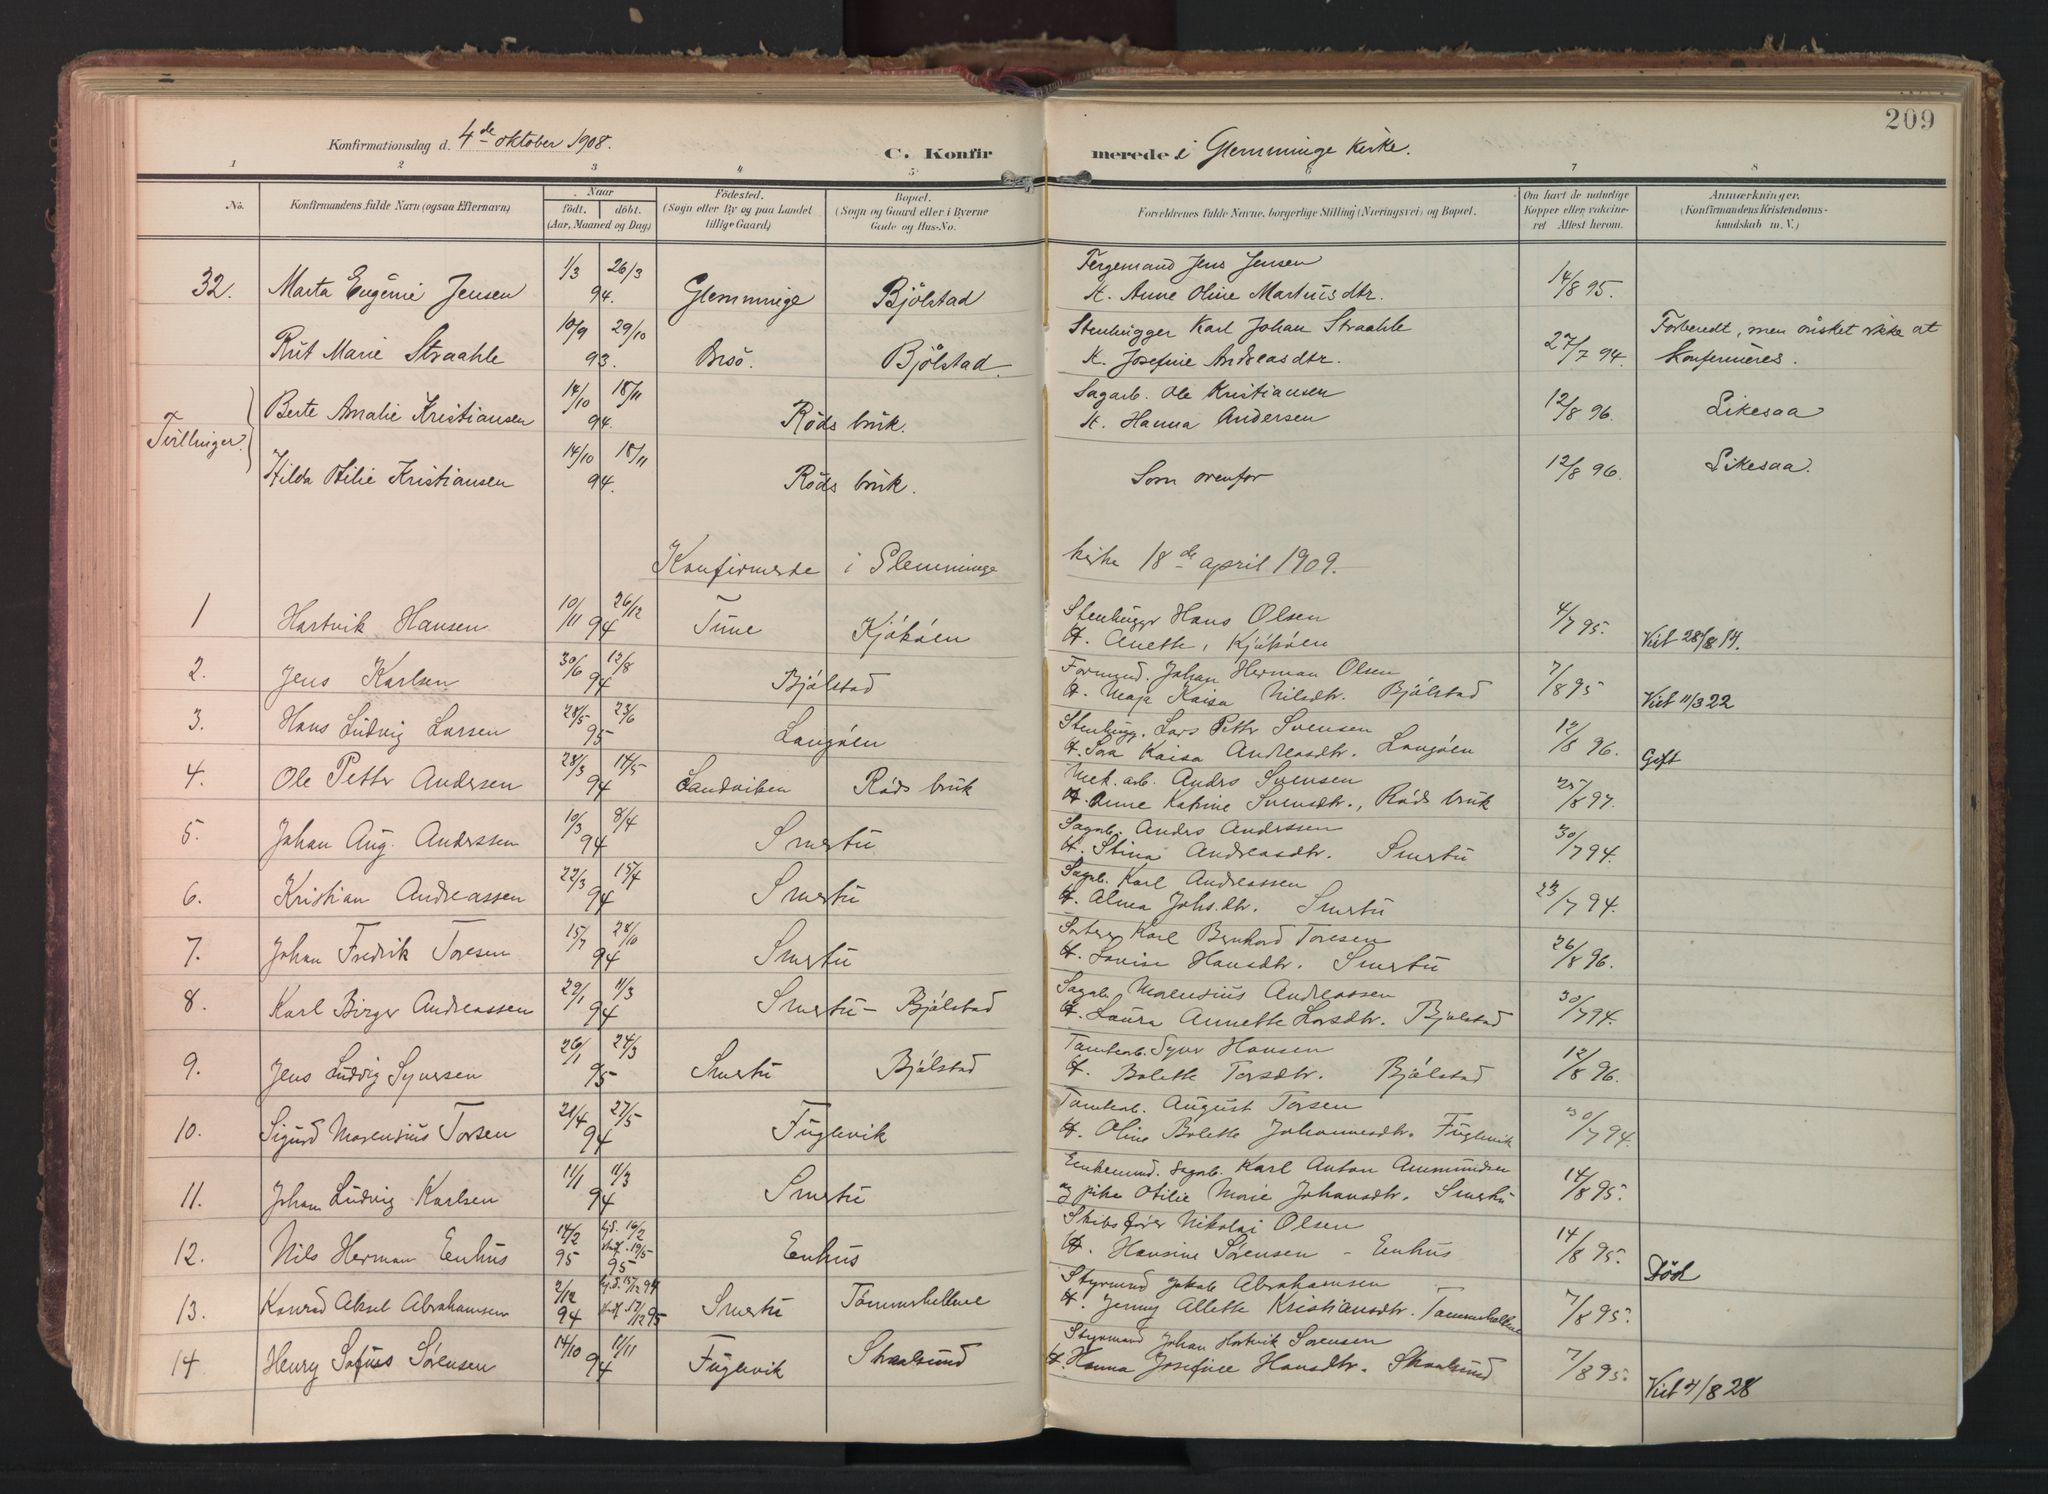 209
Konfirmationsdag d. 4de oktober 1908. C. Konfirmerede i Glemminge kirke.
1 2 3 4 5 6 7 8
No. Konfirmandens fulde Navn (ogsaa Efternavn) Naar födt. döbt. (Aar, Maaned og Dag) Födested. (Sogn eller By og paa Landet tillige Gaard) Bopæl. (Sogn og Gaard eller i Byerne Gade og Hus-No. Forældrenes fulde Navne, borgerlige Stilling (Næringsvei) og Bopæl. Om havt de naturlige Kopper eller vakcineret Attest herom. Anmærkninger. (Konfirmandens Kristendomskundskab m. V.)
32. Marta Eugenie Jensen 1/3 26/3 94. Glemminge Bjölstad Fergemand Jens Jensen
H. Anne Oline Martinisdtr. 14/8 95.
Rut Marie Straahle 10/9 29/10 93. Onsö. Bjölstad Stenhugger Karl Johan Straahle
H. Josefine Andreasdtr. 27/7 94. Forberedt, men önsket ikke at konfirmeres.
Tvillinger
Berte Amalie Kristiansen 14/10 18/11 94. Röds bruk. Sagarb. Ole Kristiansen
H. Hanna Andersen 12/8 96. Likesaa
Hilda Otilie Kristiansen 14/10 18/11 94. Röds bruk. Som ovenfor 12/8 96. Likesaa.
Konfirmerte i Glemminge kirke 18de april 1909.
1 Hartvik Hansen 10/11 26/12 94 Tune Kjököen Stenhuggr Hans Olsen
H. Anette, Kjököen 4/7 95. Viet 28/8 14.
2. Jens Karlsen 30/6 12/8 94 Bjölstad Formand. Johan Herman Olsen
H. Maja Kaisa Nilsdtr. Bjölstad 7/8 95 Viet 11/3 22
3. Hans Ludvig Larsen 28/5 23/6 95 Langöen Stenhugg. Lars Petter Svensen
H. Sara Kaisa Andreasdtr. Langöen 12/8 96. Gift
4. Ole Petter Andersen 28/3 14/5 94 Sandviken Röds bruk Mek. arb. Andrs Svensen
H. Anne Katrine Svensdtr., Röds bruk 25/8 97.
5. Johan Aug. Anderssen 10/3 8/4 94 Smertu Sagarb. Andrs Anderssen
H. Stina Andreasdtr. Smertu 30/7 94.
6. Kristian Andreassen 22/3 15/4 94 Smertu Sagarb. Karl Andreassen
H. Alma Johs.dtr. Smertu 23/7 94.
7. Johan Fredrik Toresen 15/7 28/10 94 Smertu Sorterer Karl Bernhard Toresen
H. Lovise Hansdtr. Smertu 26/8 96.
8. Karl Birger Andreassen 29/1 11/3 94 Smertu - Bjölstad Sagarb. Morensius Andreassen
H. Laura Annette Larsdtr. Bjölstad 30/7 94.
9. Jens Ludvig Syversen 26/1 24/3 95 Smertu Bjölstad Tomtearb. Syver Hansen
H. Bolette Torsdtr. Bjölstad 12/8 96.
10. Sigurd Morensius Torsen 21/4 27/5 94 Fuglevik Tomtearb. August Torsen
H. Oline Bolette Johannesdtr. Fuglevik 30/7 94.
11. Johan Ludvig Karlsen 11/1 11/3 94 Smertu Enkemand. Sagarb. Karl Anton Ammundsen
og pike Otilie Marie Johansdtr. Smertu 14/8 95.
12. Nils Herman Enhus 14/2 95 hj.d. 16/2 19/5 95 Enhus Skibsförer Nikolai Olsen
H. Hansine Sörensen - Enhus 14/8 95. Död
13. Konrad Aksel Abrahamsen 2/12 94 hj.d. 15/12 94 Smertu Tömmerhellene Styrmand Jakob Abrahamsen
H. Jenny Allette Kristiansdtr. Tömmerhellene 7/8 95.
14 Henry Sofus Sörensen 14/10 11/11 94 Fuglevik Skaalsund Styrmand Johan Hartvik Sörensen
H. Hanna Josefine Hansdtr. Skaalsund 7/8 95. Viet 4/8 28